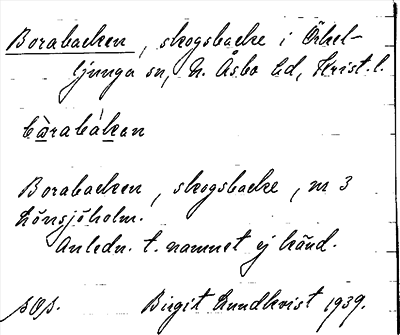 Borabacken, skogsbacke i Örkel-
ljunga sn, N. Åsbo hd, Krist. l.
bàrabákan
Borabacken, skogsbacke, m 3
Lönsjöholm.
Anledn. t. namnet ej känd.
Birgit Lundkvist 1939.